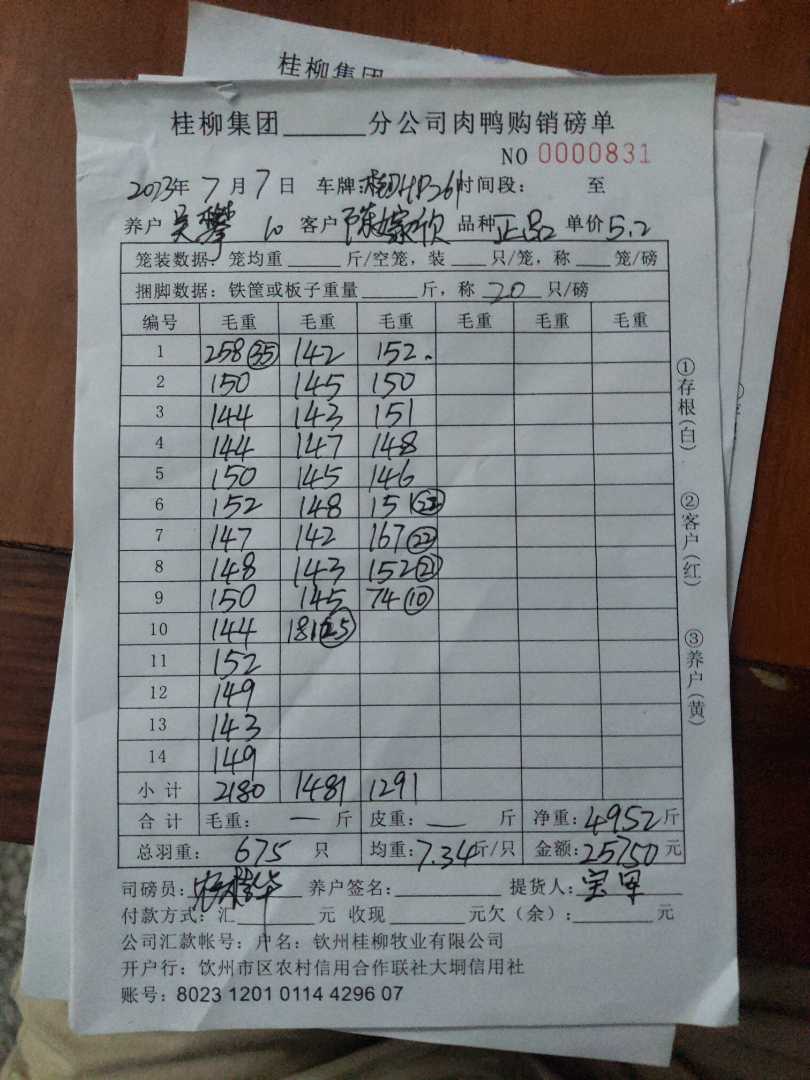 桂柳集团
桂柳集团______分公司肉鸭购销磅单
NO 0000831
2023年7月7日 车牌: 时间段: 至
养户 吴攀 10 客户 陈嫁欣 品种 正品 单价 5.2
笼装数据: 笼均重____斤/空笼, 装____只/笼, 称____笼/磅
捆脚数据: 铁筐或板子重量____斤, 称 20 只/磅
编号 毛重 毛重 毛重 毛重 毛重 毛重
1 258 (35) 142 152
2 150 145 150
3 144 143 151
4 144 147 148
5 150 145 146
6 152 148 151
7 147 142 167 (22)
8 148 143 152 (21)
9 150 145 74 (10)
10 144 181 (25)
11 152
12 149
13 143
14 149
小计 2180 1481 1291
合计 毛重: — 斤 皮重: — 斤 净重: 4952 斤
总羽重: 675 只 均重: 7.34 斤/只 金额: 25750 元
司磅员: 养户签名: 提货人:
付款方式: 汇______元 收现______元欠(余):______元
公司汇款帐号: 户名: 钦州桂柳牧业有限公司
开户行: 钦州市区农村信用合作联社大垌信用社
账号: 8023 1201 0114 4296 07
①存根(白)
②客户(红)
③养户(黄)